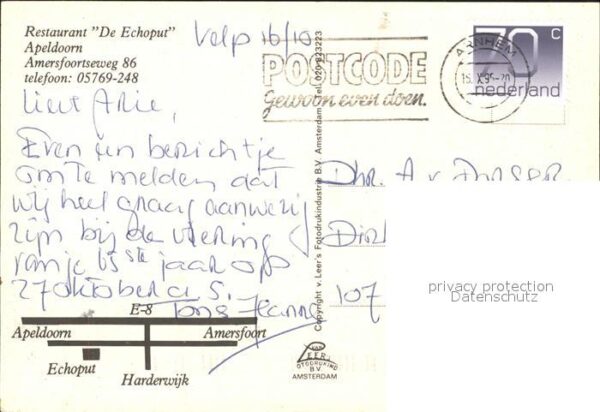 Restaurant "De Echoput"
Apeldoorn
Amersfoortseweg 86
telefoon: 05769-248
Velp 16/10
POSTCODE
Gewoon even doen.
ARNHEM
70 c
nederland
Lieve Arie,
Even een berichtje
om te melden dat
wij heel graag aanwezig
zijn bij de viering
van je ste jaar op
27 oktober a.s.
Tons Hanna
Dhr. A v
107
Copyright v. Leer's Fotodrukindustrie B.V. Amsterdam Tel. 020-823223
E-8
Apeldoorn
Amersfoort
Echoput
Harderwijk
VAN
LEER
FOTODRUKIND
BV
AMSTERDAM
privacy protection
Datenschutz